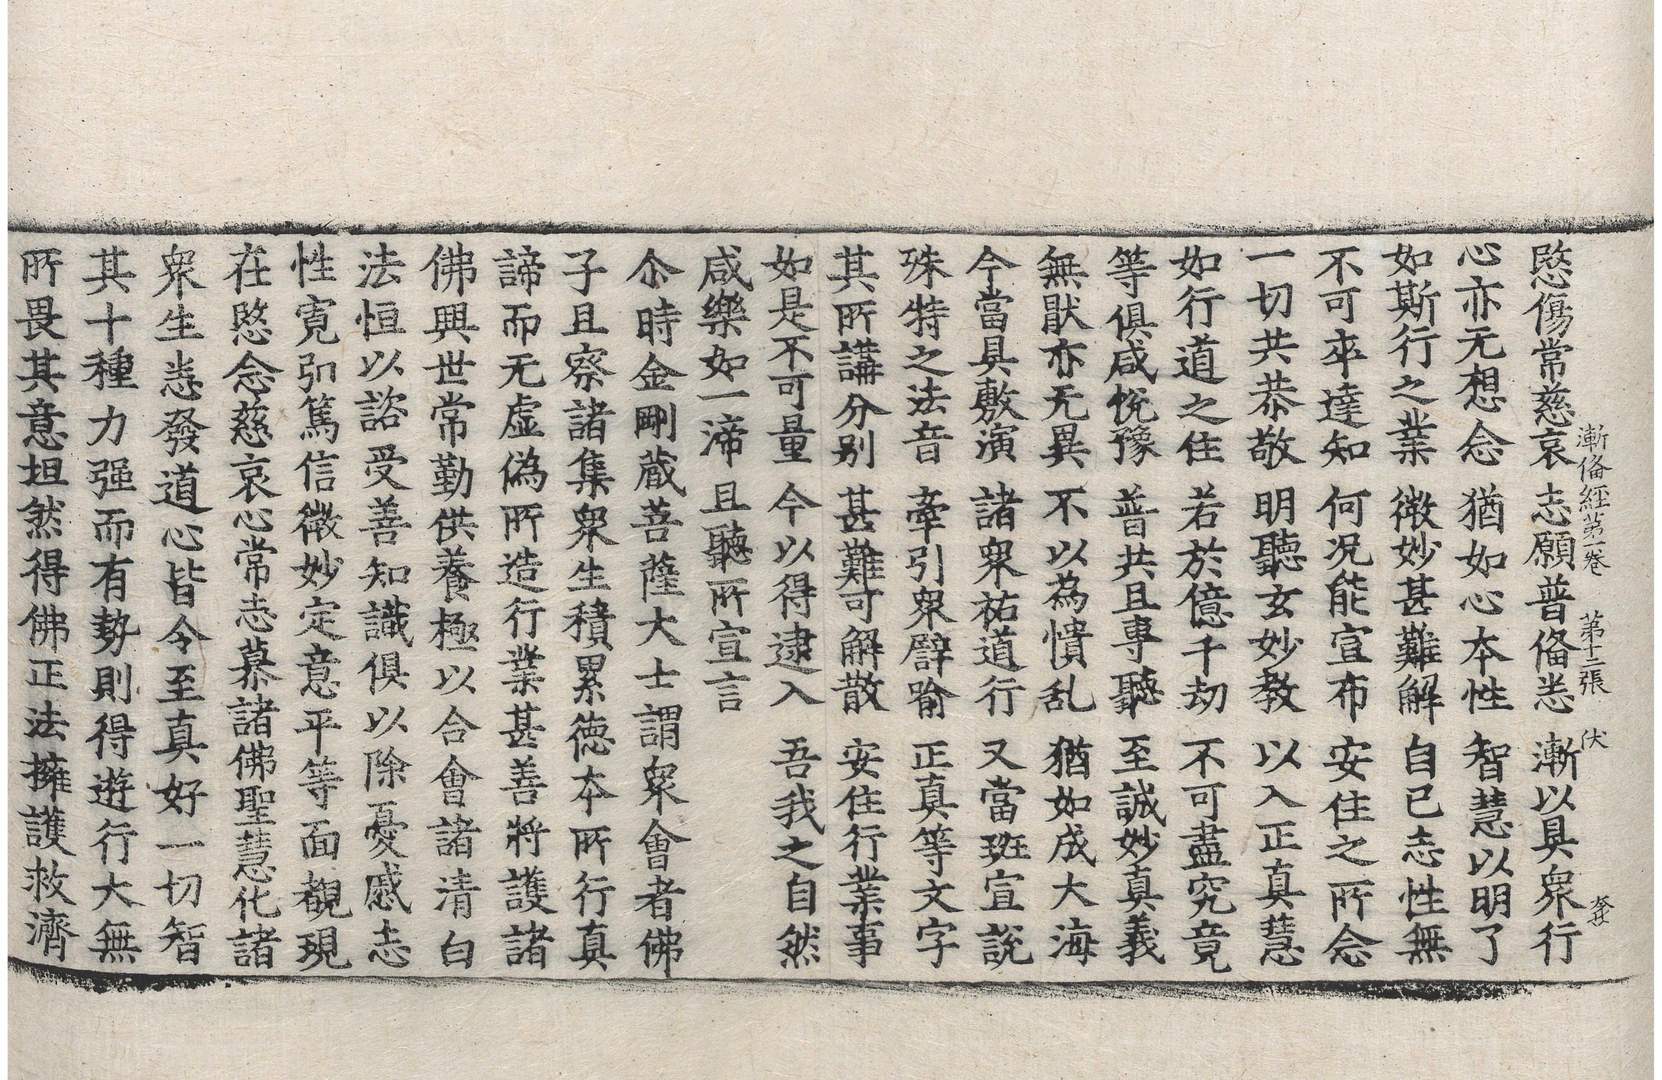 漸俻經第一卷　第十二張　伏
愍傷常慈哀　志願普俻悉　漸以具衆行
心亦无想念　猶如心本性　智慧以明了
如斯行之業　微妙甚難解　自已志性無
不可卒達知　何况能宣布　安住之所念
一切共恭敬　明聽玄妙教　以入正真慧
如行道之住　若於億千劫　不可盡究竟
等俱咸悅豫　普共且專聽　至誠妙真義
無猒亦无異　不以為憒乱　猶如成大海
今當具敷演　諸衆祐道行　又當班宣說
殊特之法音　牽引衆譬喻　正真等文字
其所講分别　甚難可解散　安住行業事
如是不可量　今以得逮入　吾我之自然
咸樂如一渧　且聽所宣言
尒時金剛蔵菩薩大士謂衆會者佛
子且察諸集衆生積累徳本所行真
諦而无虚偽所造行業甚善將護諸
佛興世常勤供養極以合會諸清白
法恒以諮受善知識俱以除憂慼志
性寛弘篤信微妙定意平等面覩現
在愍念慈哀心常志慕諸佛聖慧化諸
衆生恙發道心皆令至真好一切智
其十種力强而有勢則得遊行大無
所畏其意坦然得佛正法擁護救濟